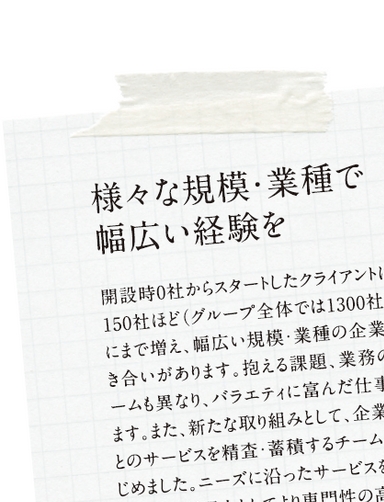 様々な規模・業種で
幅広い経験を
開設時0社からスタートしたクライアント
150社ほど（グループ全体では1300社
にまで増え、幅広い規模・業種の企業
き合いがあります。抱える課題、業務の
ームも異なり、バラエティに富んだ仕事
ます。また、新たな取り組みとして、企業
とのサービスを精査・蓄積するチーム
じめました。ニーズに沿ったサービスを
より専門性の高